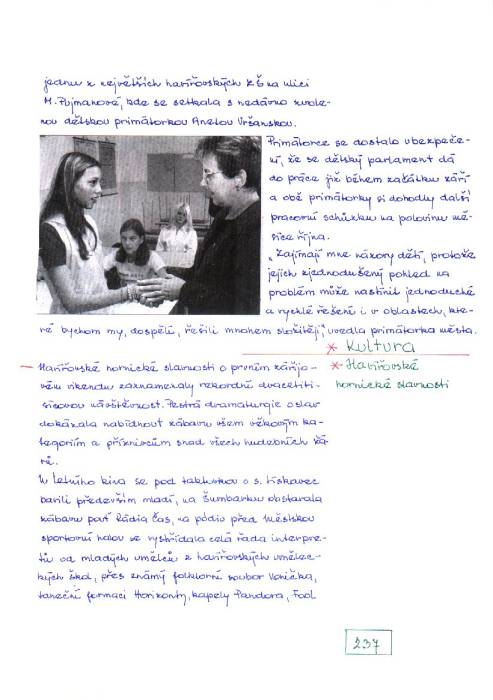 jednu z největších havířovských ZŠ na ulici
M. Pujmanové, kde se setkala s nedávno zvole-
nou dětskou primátorkou Anetou Vršanskou.
Primátorce se dostalo ubezpeče-
ní, že se dětský parlament dá
do práce již během začátku září
a obě primátorky si dohodly další
pracovní schůzku na polovinu mě-
síce října.
"Zajímají mne názory dětí, protože
jejich zjednodušený pohled na
problém může nastínit jednoduché
a rychlé řešení i v oblastech, kte-
ré bychom my, dospělí, řešili mnohem složitěji," uvedla primátorka města.
* Kultura
* Havířovské
hornické slavnosti
– Havířovské hornické slavnosti o prvním zářijo-
vém víkendu zaznamenaly rekordní dvacetiti-
sícovou návštěvnost. Pestrá dramaturgie oslav
dokázala nabídnout zábavu všem věkovým ka-
tegoriím a příznivcům snad všech hudebních žá-
rů.
U Letního kina se pod taktovkou o. s. Lískavec
bavili především mladí, na Šumbarku obstarala
zábavu pouť Rádia Čas, na pódiu před Městskou
sportovní halou se vystřídala celá řada interpre-
tů od mladých umělců z havířovských umělec-
kých škol, přes známý folklorní soubor Vonička,
taneční formaci Horizonty, kapely Pandora, Fool
237